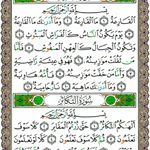 بِسْمِ اللَّهِ الرَّحْمَٰنِ الرَّحِيمِ
الْقَارِعَةُ ۝ مَا الْقَارِعَةُ ۝ وَمَا أَدْرَاكَ مَا الْقَارِعَةُ ۝
يَوْمَ يَكُونُ النَّاسُ كَالْفَرَاشِ الْمَبْثُوثِ ۝
وَتَكُونُ الْجِبَالُ كَالْعِهْنِ الْمَنْفُوشِ ۝ فَأَمَّا
مَنْ ثَقُلَتْ مَوَازِينُهُ ۝ فَهُوَ فِي عِيشَةٍ رَاضِيَةٍ ۝
وَأَمَّا مَنْ خَفَّتْ مَوَازِينُهُ ۝ فَأُمُّهُ هَاوِيَةٌ ۝
وَمَا أَدْرَاكَ مَا هِيَهْ ۝ نَارٌ حَامِيَةٌ ۝
سُورَةُ التَّكَاثُرِ
بِسْمِ اللَّهِ الرَّحْمَٰنِ الرَّحِيمِ
أَلْهَاكُمُ التَّكَاثُرُ ۝ حَتَّىٰ زُرْتُمُ الْمَقَابِرَ ۝ كَلَّا سَوْفَ
تَعْلَمُونَ ۝ ثُمَّ كَلَّا سَوْفَ تَعْلَمُونَ ۝